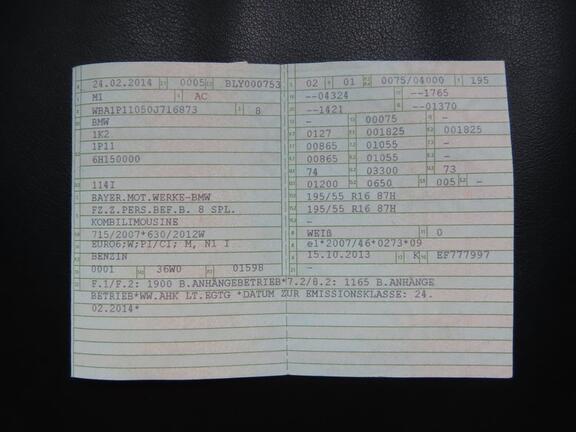 24.02.2014 0005 BLY000753
M1 AC
WBA1P11050J716873 8
BMW
1K2
1P11
6H150000
114I
BAYER.MOT.WERKE-BMW
FZ.Z.PERS.BEF.B. 8 SPL.
KOMBILIMOUSINE
715/2007*630/2012W
EURO6;W;PI/CI; M, N1 I
BENZIN
0001 36W0 01598
02 01 0075/04000 195
--04324 --1765
--1421 --01370
- 00075 -
0127 001825 001825
00865 01055 -
00865 01055 -
74 03300 73
01200 0650 005 -
195/55 R16 87H
195/55 R16 87H
-
WEIß 0
e1*2007/46*0273*09
15.10.2013 K EF777997
-
F.1/F.2: 1900 B.ANHÄNGEBETRIEB*7.2/8.2: 1165 B.ANHÄNGE
BETRIEB*WW.AHK LT.EGTG *DATUM ZUR EMISSIONSKLASSE: 24.
02.2014*